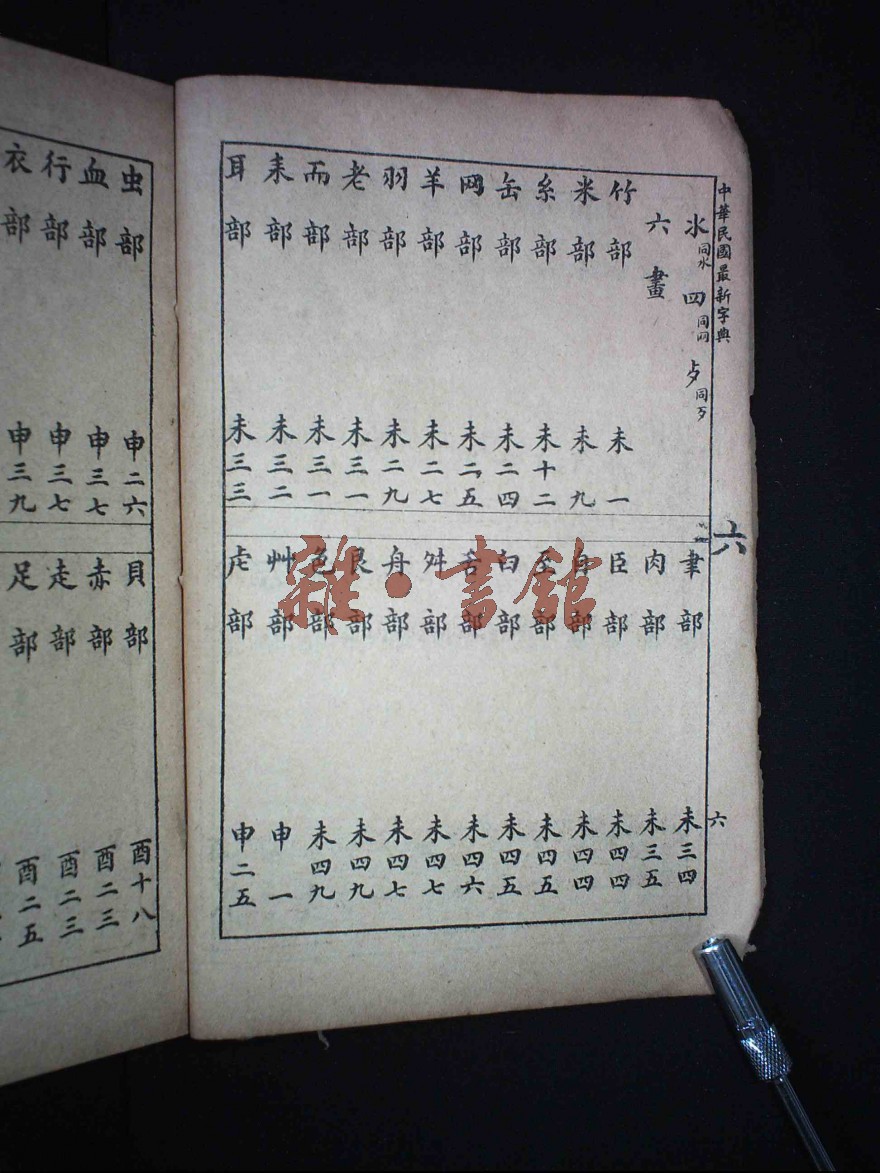 中華民國最新字典
氺同水 罒同网 歺同歹
六畫
竹部 未一
米部 未九
糸部 未十二
缶部 未二四
网部 未二五
羊部 未二七
羽部 未二九
老部 未三一
而部 未三一
耒部 未三二
耳部 未三三
六
六
聿部 未三四
肉部 未三五
臣部 未四四
自部 未四四
至部 未四五
臼部 未四五
舌部 未四六
舛部 未四七
舟部 未四七
艮部 未四九
色部 未四九
艸部 申一
虍部 申二五
虫部 申二六
血部 申三七
行部 申三七
衣部 申三九
貝部 酉十八
赤部 酉二三
走部 酉二三
足部 酉二五
雜·書館